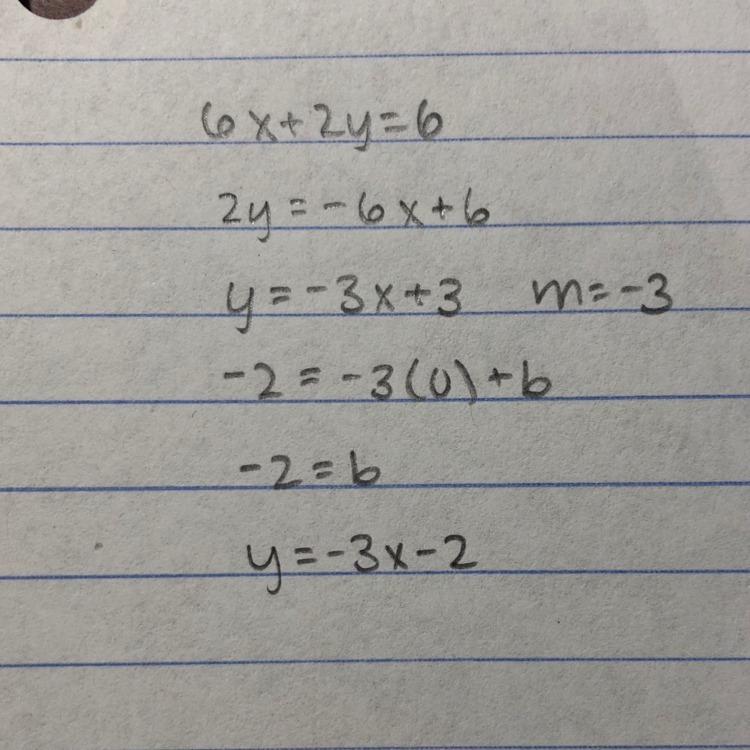 6x+2y=6
2y=-6x+6
y=-3x+3 m=-3
-2=-3(0)+b
-2=b
y=-3x-2